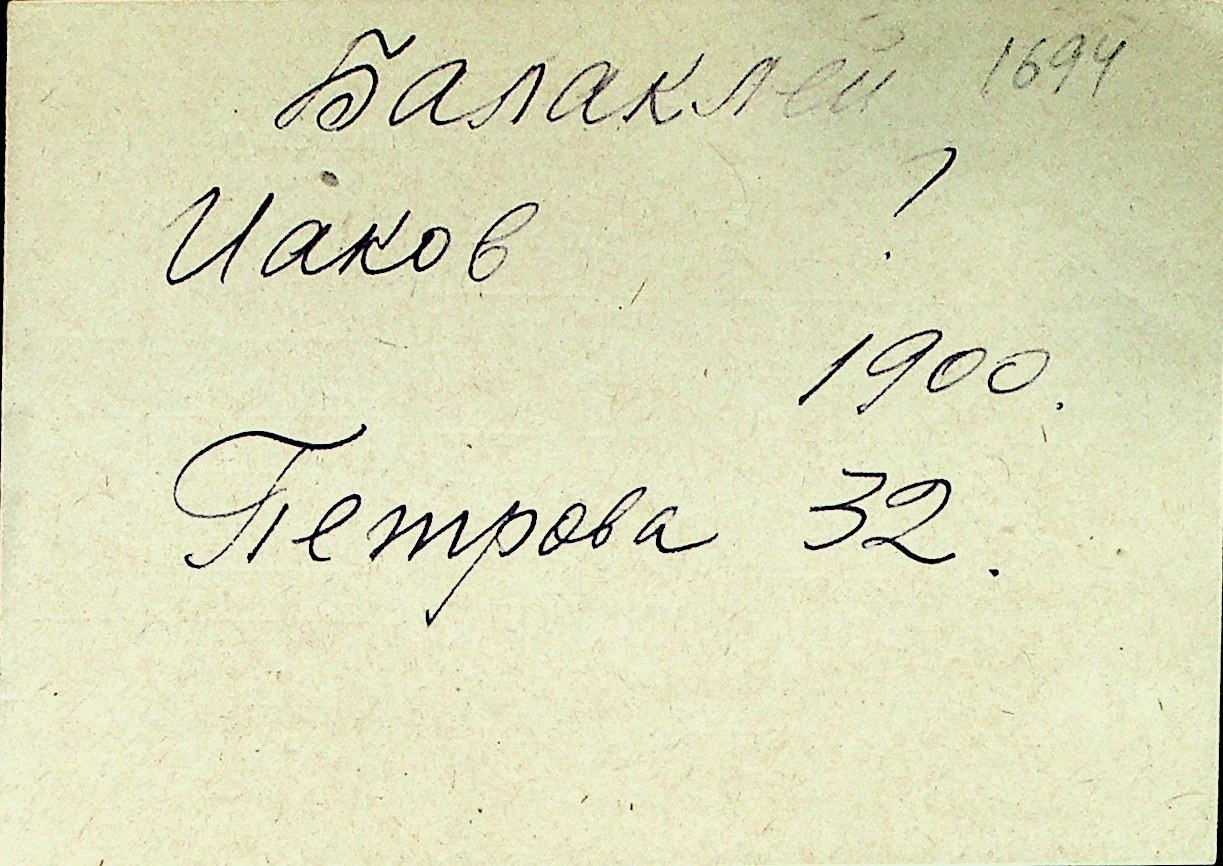 Балаклей 1694
Иаков ?
1900.
Петрова 32.